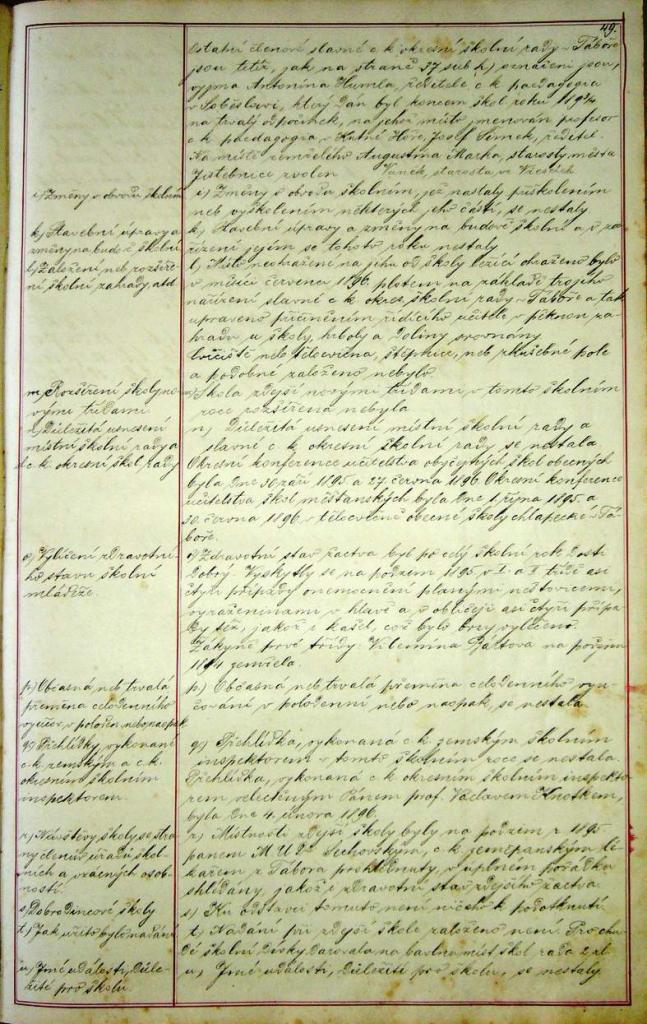 49.
Ostatní členové slavné c k okresní školní rady v Táboře
jsou titíž, jak na straně 37 sub h) označeni jsou,
vyjma Antonína Humla, ředitele c k paedagogia
v Soběslavi, který dán byl koncem škol roku
na trvalý odpočinek, na jehož místo jmenován profesor
c k paedagogia v Kutné Hoře, Josef Šimek, ředitel.
Na místě zemřelého Augustina Macha, starosty města
Jistebnice zvolen Vaněk, starosta ve
i) Změny v obvodu školním
i) Změny v obvodu školním, jež nastaly přiškolením
neb vyškolením některých jeho částí, se nestaly
k) Stavební úpravy a
změny na budově školní
k) Stavební úpravy a změny na budově školní a v za-
řízení jejím se tohoto roku nestaly
l) Založení neb rozšíře-
ní školní zahrady atd
l) Místo neohražené na jihu od školy ležící ohraženo bylo
v měsíci červenci 1896 plotem na základě trojího
nařízení slavné c k okres. školní rady v Táboře a tak
upraveno přičiněním řídícího učitele v pěknou za-
hradu u školy, hrboly a doliny srovnány
Cvičiště neb tělocvična, štěpnice, neb zkušebné pole
a podobné založeno nebylo
m) Rozšíření školy no-
vými třídami
m) Škola zdejší novými třídami v tomto školním
roce rozšířena nebyla
n) Důležitá usnesení
místní školní rady a
c. k. okresní škol rady
n) Důležitá usnesení místní školní rady a
slavné c k okresní školní rady se nestala
Okresní konference učitelstva obyčejných škol obecných
byla dne 30 září 1895 a 27. června 1896. Okresní konference
učitelstva škol měšťanských byla dne 1. října 1895 a
30. června 1896 v tělocvičně obecní školy chlapecké v Tá-
boře.
o) Vylíčení zdravotní-
ho stavu školní
mládeže.
o) Zdravotní stav žactva byl po celý školní rok dosti
dobrý. Vyskytly se na podzim 1895 v I. a II třídě asi
čtyři případy onemocnění planými neštovicemi,
vyraženinami v hlavě a v obličeji asi čtyři přípa-
dy též, jakož i kašel, což bylo brzy vyléčeno.
Žákyně prvé třídy Vilemína na podzim
zemřela.
p) Občasná neb trvalá
přeměna celodenního
vyučov. v poloden. nebo naopak
p.) Občasná neb trvalá přeměna celodenního vyu-
čování v polodenní nebo naopak, se nestala
q) Přehlídky, vykonané
c. k. zemským a c. k.
okresním školním
inspektorem.
q) Přehlídka, vykonaná c k zemským školním
inspektorem v tomto školním roce se nestala.
Přehlídka, vykonaná c k okresním školním inspekto-
rem velectěným Pánem prof. Václavem Knotkem,
byla dne 4. února 1896.
r) Návštěvy školy se stra-
ny členů úřadů škol-
ních a vzácných osob-
ností.
r) Místnosti zdejší školy byly na podzim r. 1895
panem M. U. Dr. Suchovským, c. k. zeměpanským lé-
kařem z Tábora prohlédnuty, v úplném pořádku
shledány, jakož i zdravotní stav zdejšího žactva
s) Dobrodincové školy
s) Ku odstavci tomuto není ničeho k podotknutí
t) Jak užito bylo nadání
t) Nadání při zdejší škole založeno není. Pro chu-
dé školní dítky darovala na bavlnu míst. škol. rada 2 zl
u) Jiné události, důle-
žité pro školu.
u) Jiné události, důležité pro školu, se nestaly